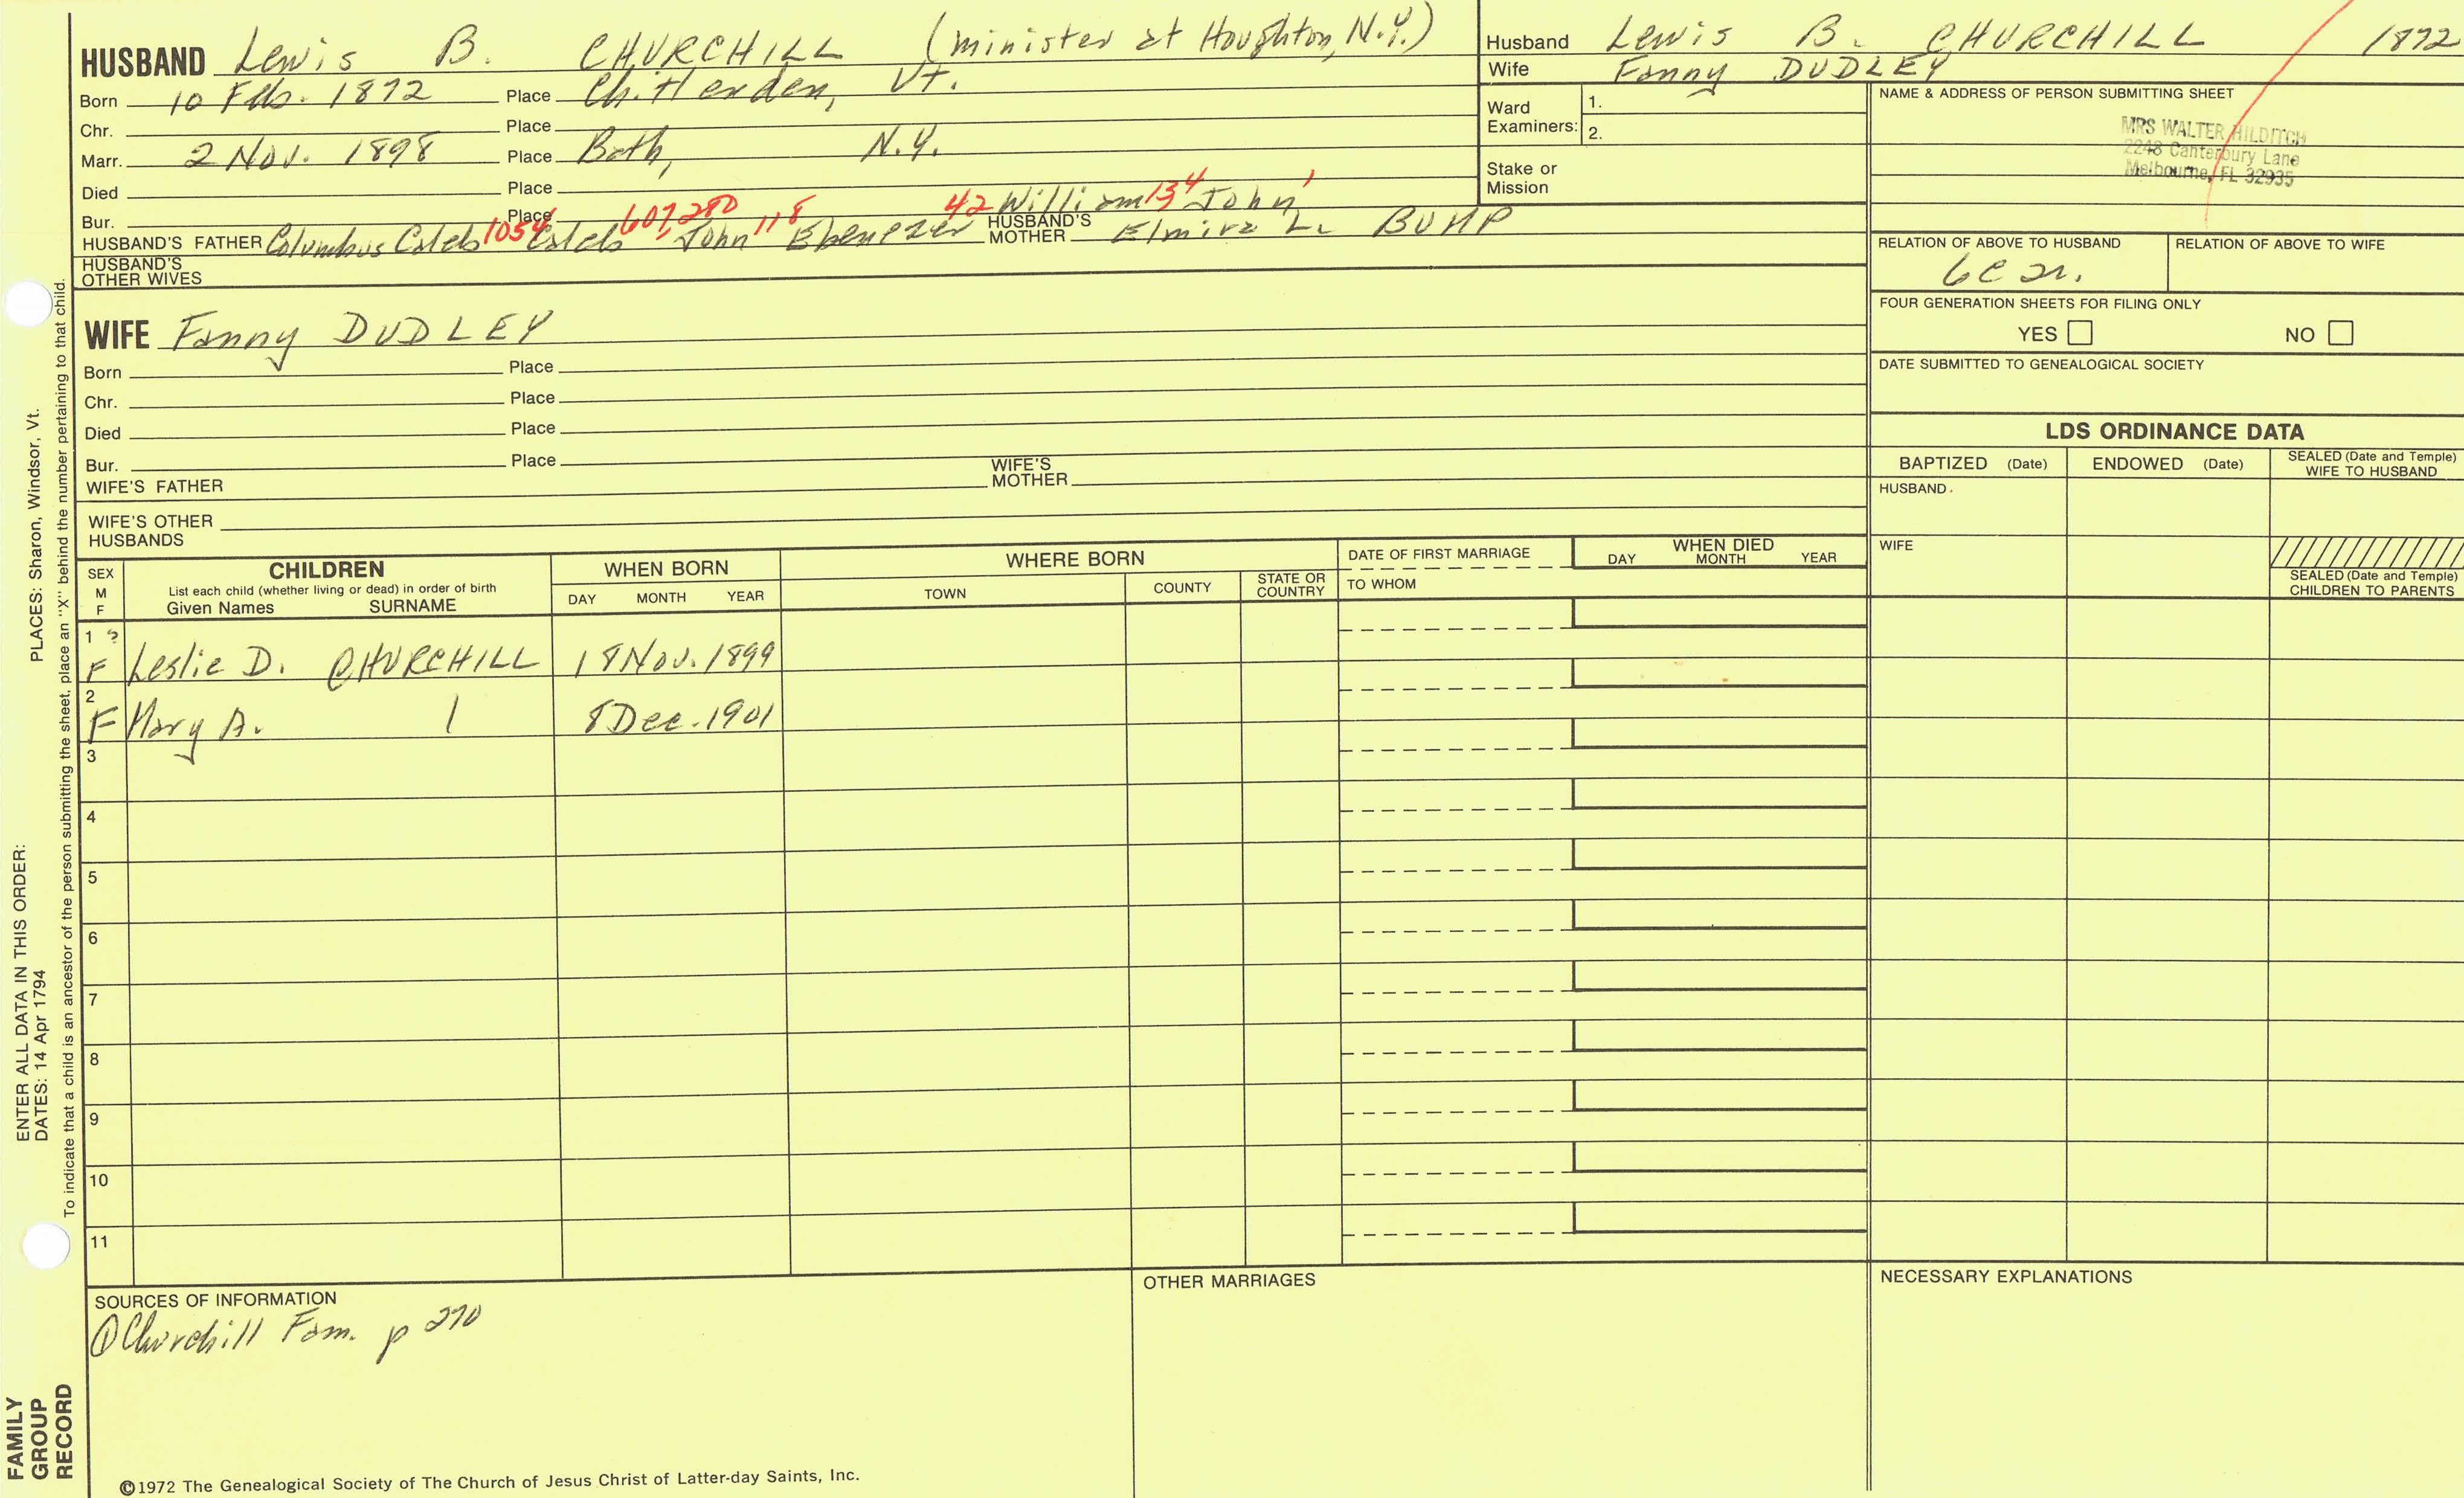 HUSBAND Lewis B. CHURCHILL (minister at Houghton, N.Y.)
Born 10 Feb. 1872 Place Chittenden, Vt.
Chr. Place
Marr. 2 Nov. 1898 Place Bath, N.Y.
Died Place
Bur. Place
HUSBAND'S FATHER Columbus Caleb 1054 Caleb 607, 280 John 118 Ebenezer 42 William 13 4 John 1
HUSBAND'S MOTHER Elmira L. BUMP
HUSBAND'S OTHER WIVES
Husband Lewis B. CHURCHILL 1872
Wife Fanny DUDLEY
Ward Examiners: 1.
2.
Stake or Mission
NAME & ADDRESS OF PERSON SUBMITTING SHEET
MRS WALTER HILDITCH
2248 Canterbury Lane
Melbourne, FL 32935
RELATION OF ABOVE TO HUSBAND RELATION OF ABOVE TO WIFE
6C
FOUR GENERATION SHEETS FOR FILING ONLY
YES NO
DATE SUBMITTED TO GENEALOGICAL SOCIETY
WIFE Fanny DUDLEY
Born Place
Chr. Place
Died Place
Bur. Place
WIFE'S FATHER WIFE'S MOTHER
WIFE'S OTHER HUSBANDS
LDS ORDINANCE DATA
BAPTIZED (Date) ENDOWED (Date) SEALED (Date and Temple) WIFE TO HUSBAND
HUSBAND
WIFE
SEALED (Date and Temple) CHILDREN TO PARENTS
SEX M F
CHILDREN
List each child (whether living or dead) in order of birth
Given Names SURNAME
WHEN BORN
DAY MONTH YEAR
WHERE BORN
TOWN COUNTY STATE OR COUNTRY
DATE OF FIRST MARRIAGE
TO WHOM
WHEN DIED
DAY MONTH YEAR
1 ?
F Leslie D. CHURCHILL 18 Nov. 1899
2
F Mary A. 8 Dec. 1901
3
4
5
6
7
8
9
10
11
SOURCES OF INFORMATION
① Churchill Fam. p 270
OTHER MARRIAGES
NECESSARY EXPLANATIONS
©1972 The Genealogical Society of The Church of Jesus Christ of Latter-day Saints, Inc.
FAMILY GROUP RECORD
ENTER ALL DATA IN THIS ORDER:
DATES: 14 Apr 1794 PLACES: Sharon, Windsor, Vt.
To indicate that a child is an ancestor of the person submitting the sheet, place an "X" behind the number pertaining to that child.